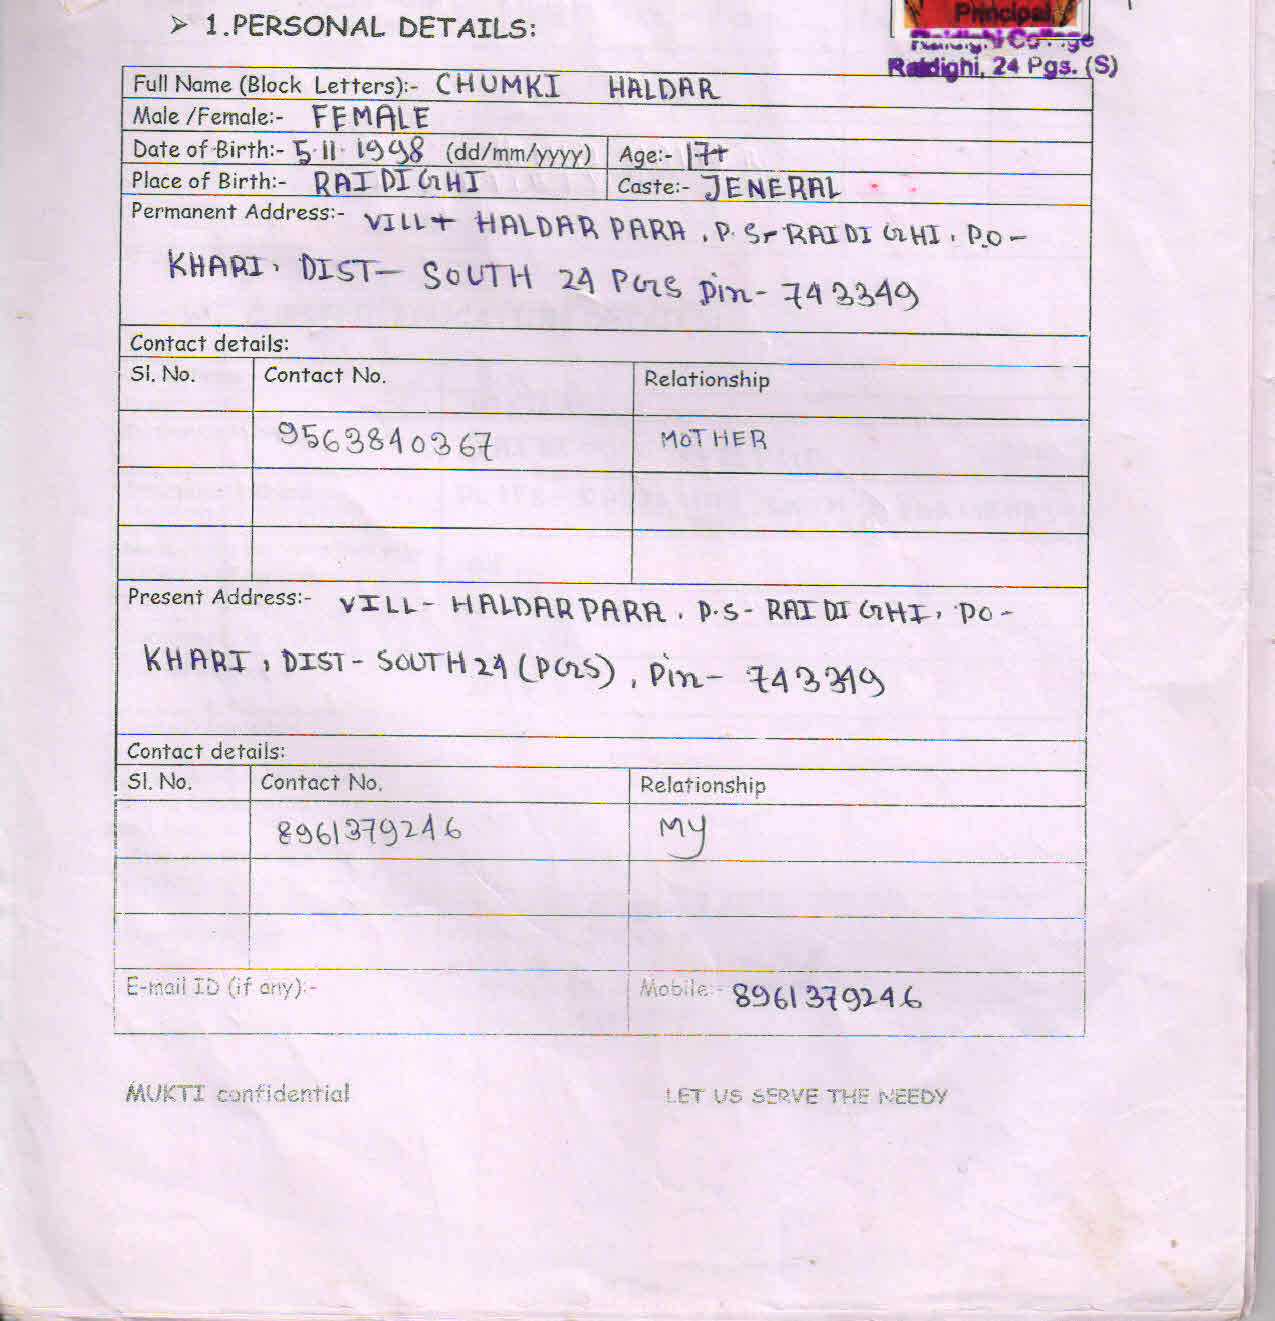 Principal
Raidighi College
Raidighi, 24 Pgs. (S)
➢ 1.PERSONAL DETAILS:
Full Name (Block Letters):- CHUMKI HALDAR
Male /Female:- FEMALE
Date of Birth:- 5.11.1998 (dd/mm/yyyy) Age:- 17+
Place of Birth:- RAIDIGHI Caste:- JENERAL
Permanent Address:- VILL+ HALDAR PARA, P.S- RAIDIGHI, P.O-
KHARI, DIST- SOUTH 24 PGS Pin- 743349
Contact details:
Sl. No. Contact No. Relationship
9563840367 MOTHER
Present Address:- VILL- HALDARPARA, P.S- RAIDIGHI, PO-
KHARI, DIST- SOUTH 24 (PGS), Pin- 743349
Contact details:
Sl. No. Contact No. Relationship
8961379246 MY
E-mail ID (if any):- Mobile:- 8961379246
MUKTI confidential LET US SERVE THE NEEDY